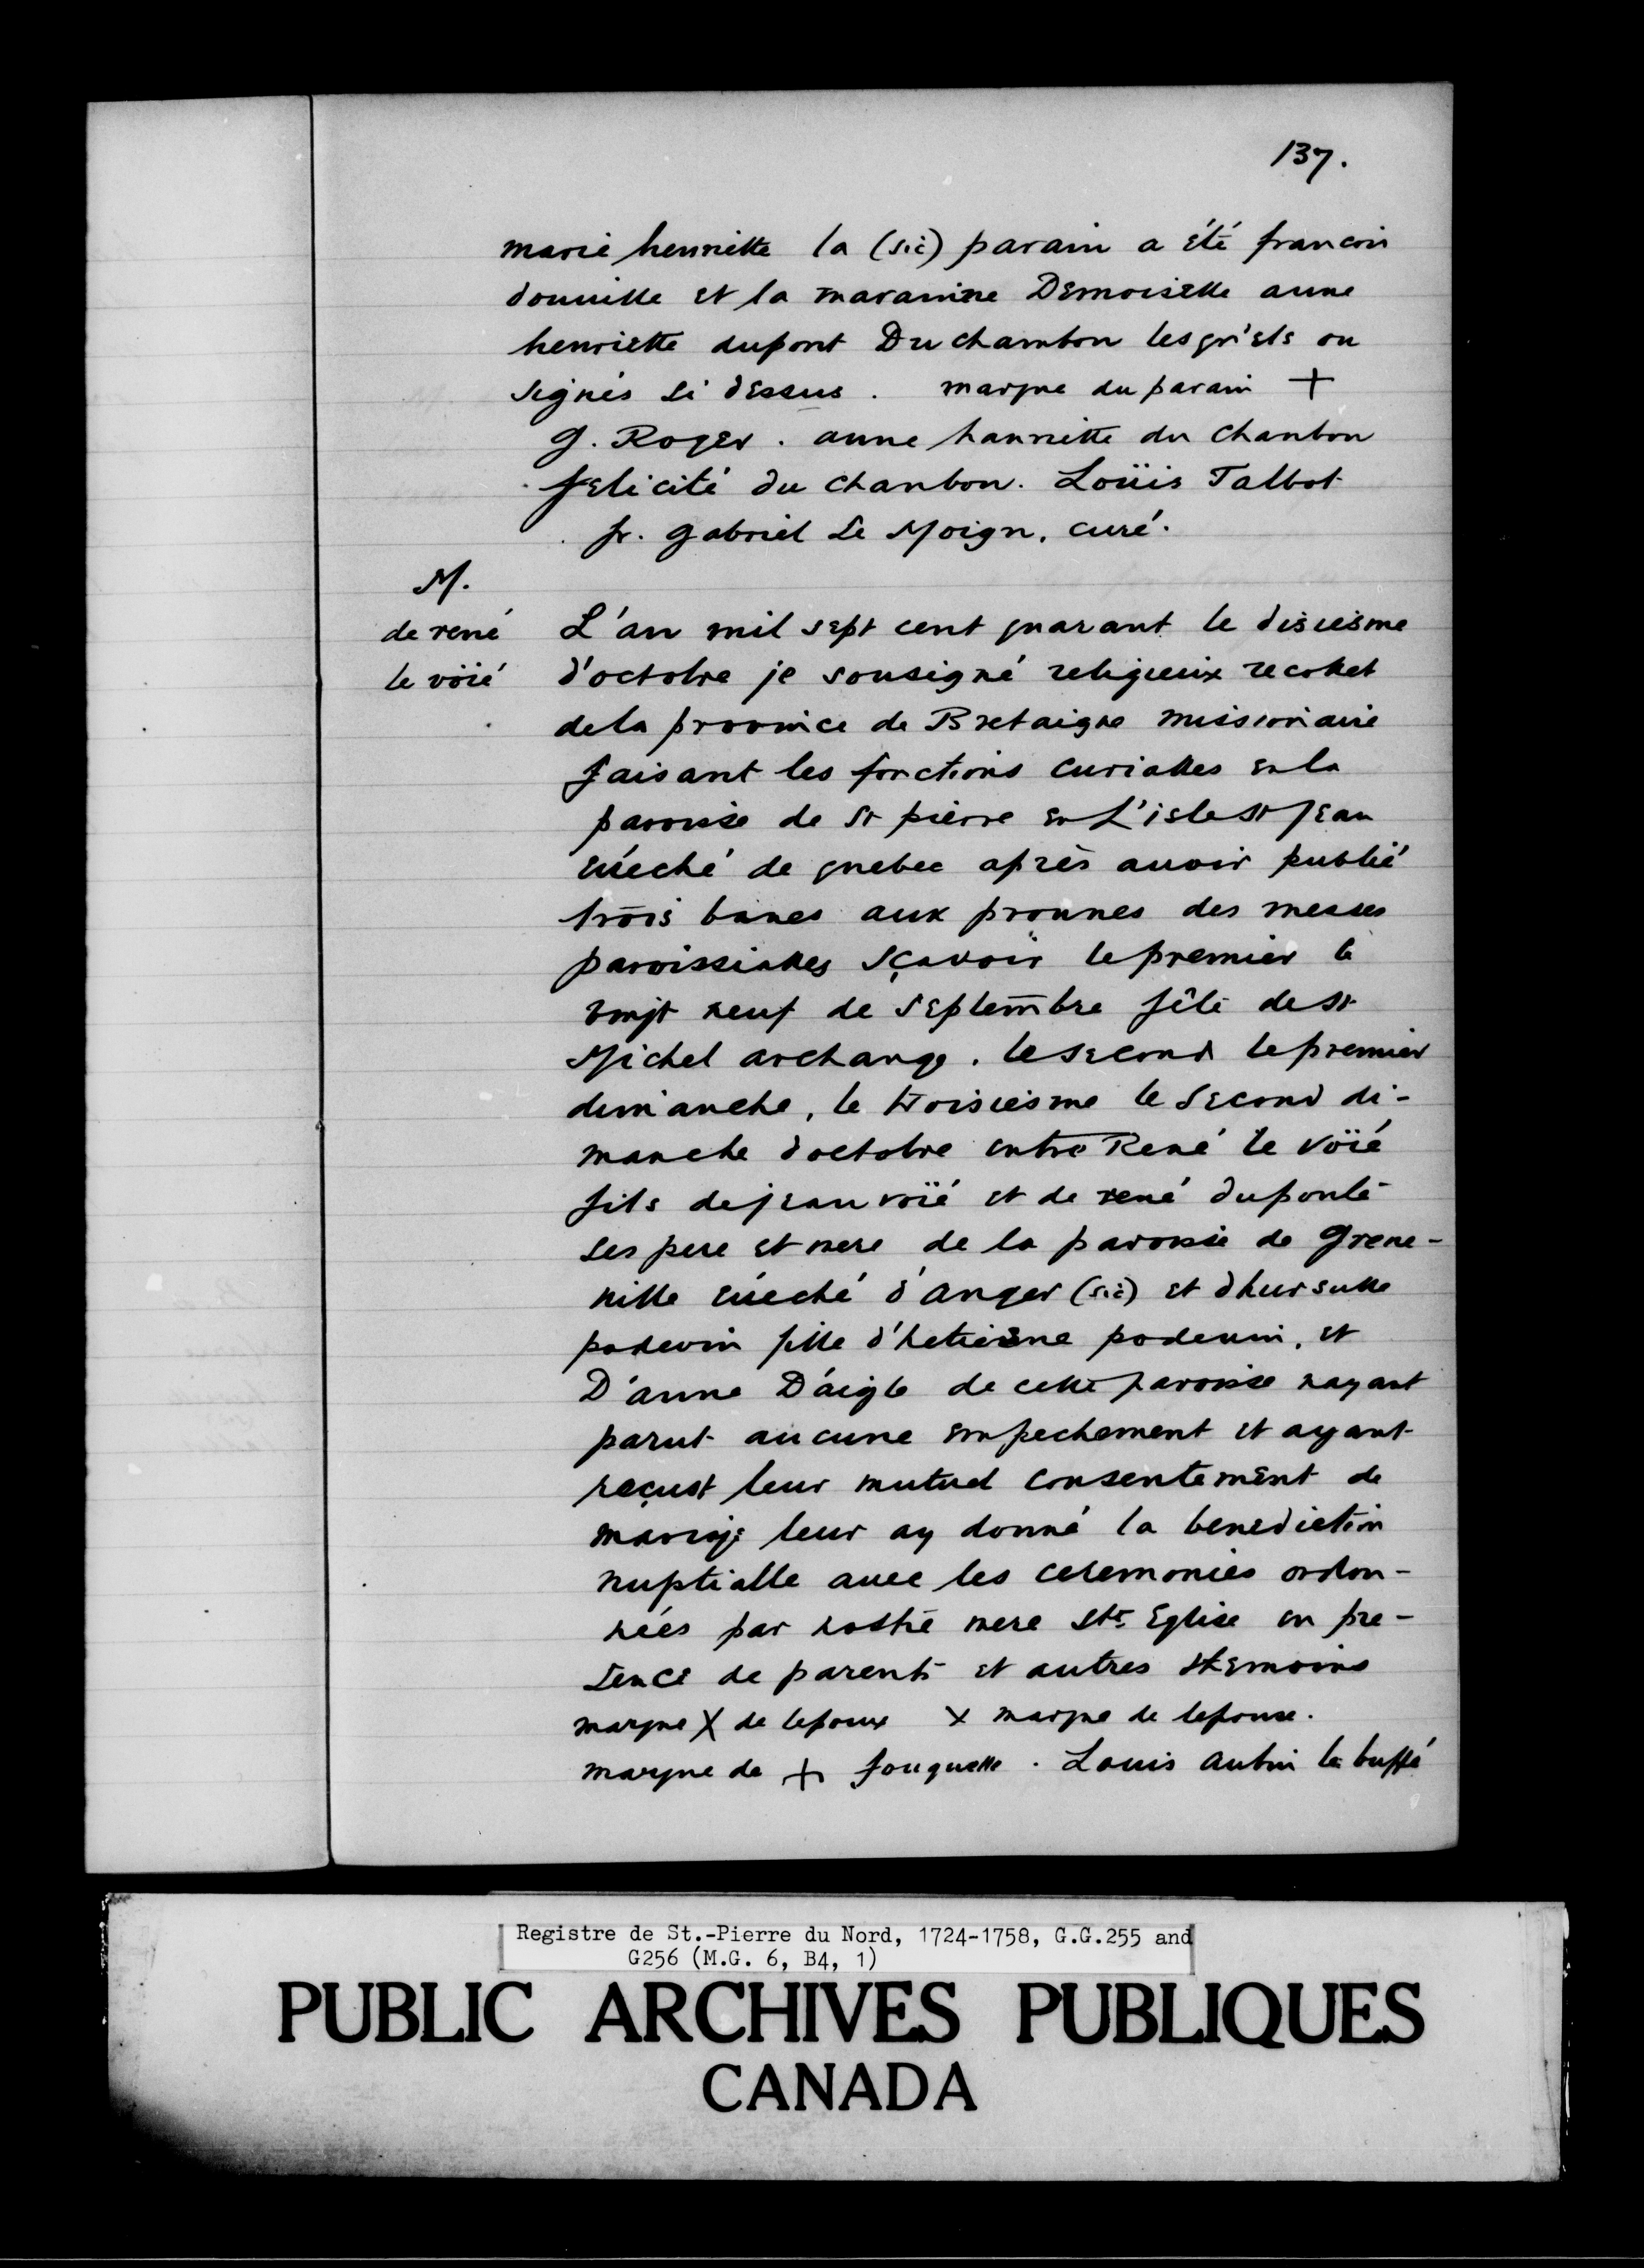 137.
marie henriette la (sic) parain a été francois
douuille et la maramine Demoiselle anne
henriette dupont Duchambon lesqu'els on
signés si dessus. marque du parain +
G. Roger. anne hanriette du chanbon
felicité du chanbon. Loüis Talbot
fr. gabriel Le Moign, curé.
M.
de rené
le voïé
L'an mil sept cent quarant le disiesme
d'octobre je sousigné religieuix recollet
dela province de Bretaigne missionaire
faisant les fonctions curialles enla
paroisse de St pierre en L'isle St Jean
euéché de quebec après auoir publié
trois banes aux pronnes des messes
paroissialles sçavoir lepremier le
vingt neuf de septembre fête de St
Michel archange. lesecond lepremier
dimanche, le troisiesme le second di-
manche doctobre entre René le voïé
fils dejean voïé et de rené duponté
ses pere et mere de la paroisse de Grene-
nille euéché d'anger (sic) et dhursulle
podevin fille d'hetiesne podeuin, et
D'anne D'aigle de cette paroisse nayant
parut aucune empechement et ayant
reçust leur mutuel consentement de
mariage leur ay donné la benediction
nuptialle auec les ceremonies ordon-
néés par nostre mere Ste Eglise en pre-
sence de parents et autres stemoins
marque X de lepoux x marque de lepouse.
marque de + fouquelle. Louis aubin le buffé
Registre de St.-Pierre du Nord, 1724-1758, G.G.255 and
G256 (M.G. 6, B4, 1)
PUBLIC ARCHIVES PUBLIQUES
CANADA